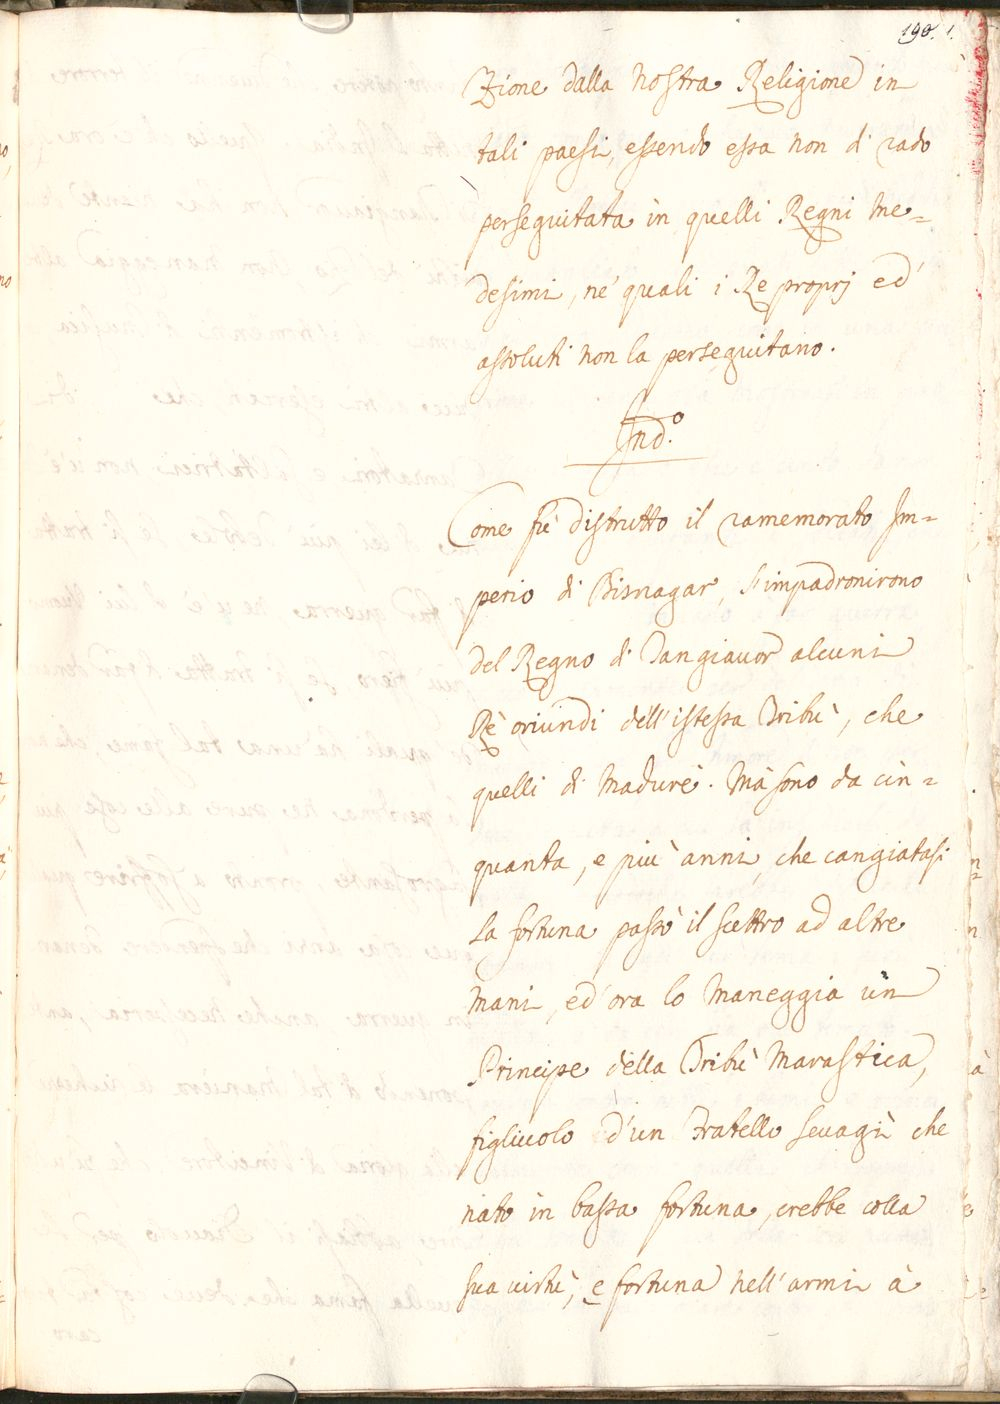 190. 1.
Zione dalla nostra Religione in
tali paesi, essendo essa non di rado
perseguitata in quelli Regni me=
desimi, ne' quali i Re proprj ed
assoluti non la perseguitano.
Ind.º
Come fù distrutto il ramemorato Im=
perio di Bisnagar, s'impadronirono
del Regno di Tangiauor alcuni
Rè oriundi dell'istessa Tribù, che
quelli di Madurè. Mà sono da cin=
quanta, e più anni, che cangiatasi
la fortuna passò il scettro ad altre
mani, ed'ora lo maneggia un
Principe della Tribù Marastica,
figliuolo d'un Fratello Seuagì che
nato in bassa fortuna, crebbe colla
sua uirtù, e fortuna nell'armi à